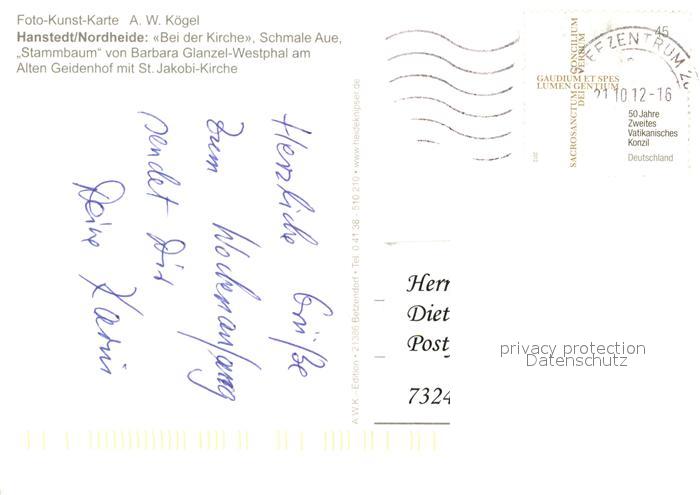 Foto-Kunst-Karte A. W. Kögel
Hanstedt/Nordheide: «Bei der Kirche», Schmale Aue,
„Stammbaum“ von Barbara Glanzel-Westphal am
Alten Geidenhof mit St. Jakobi-Kirche
Herzliche Grüße
zum Wochenanfang
sendet Dir
Deine Karin
A.W.K - Edition • 21386 Betzendorf • Tel. 0 41 38 - 510 210 • www.heideknipser.de
45
SACROSANCTUM CONCILIUM
DEI VERBUM
GAUDIUM ET SPES
LUMEN GENTIUM
50 Jahre
Zweites
Vatikanisches
Konzil
Deutschland
2012
EFZENTRUM
21.10.12-16
Herr
Diet
Post
7324
privacy protection
Datenschutz